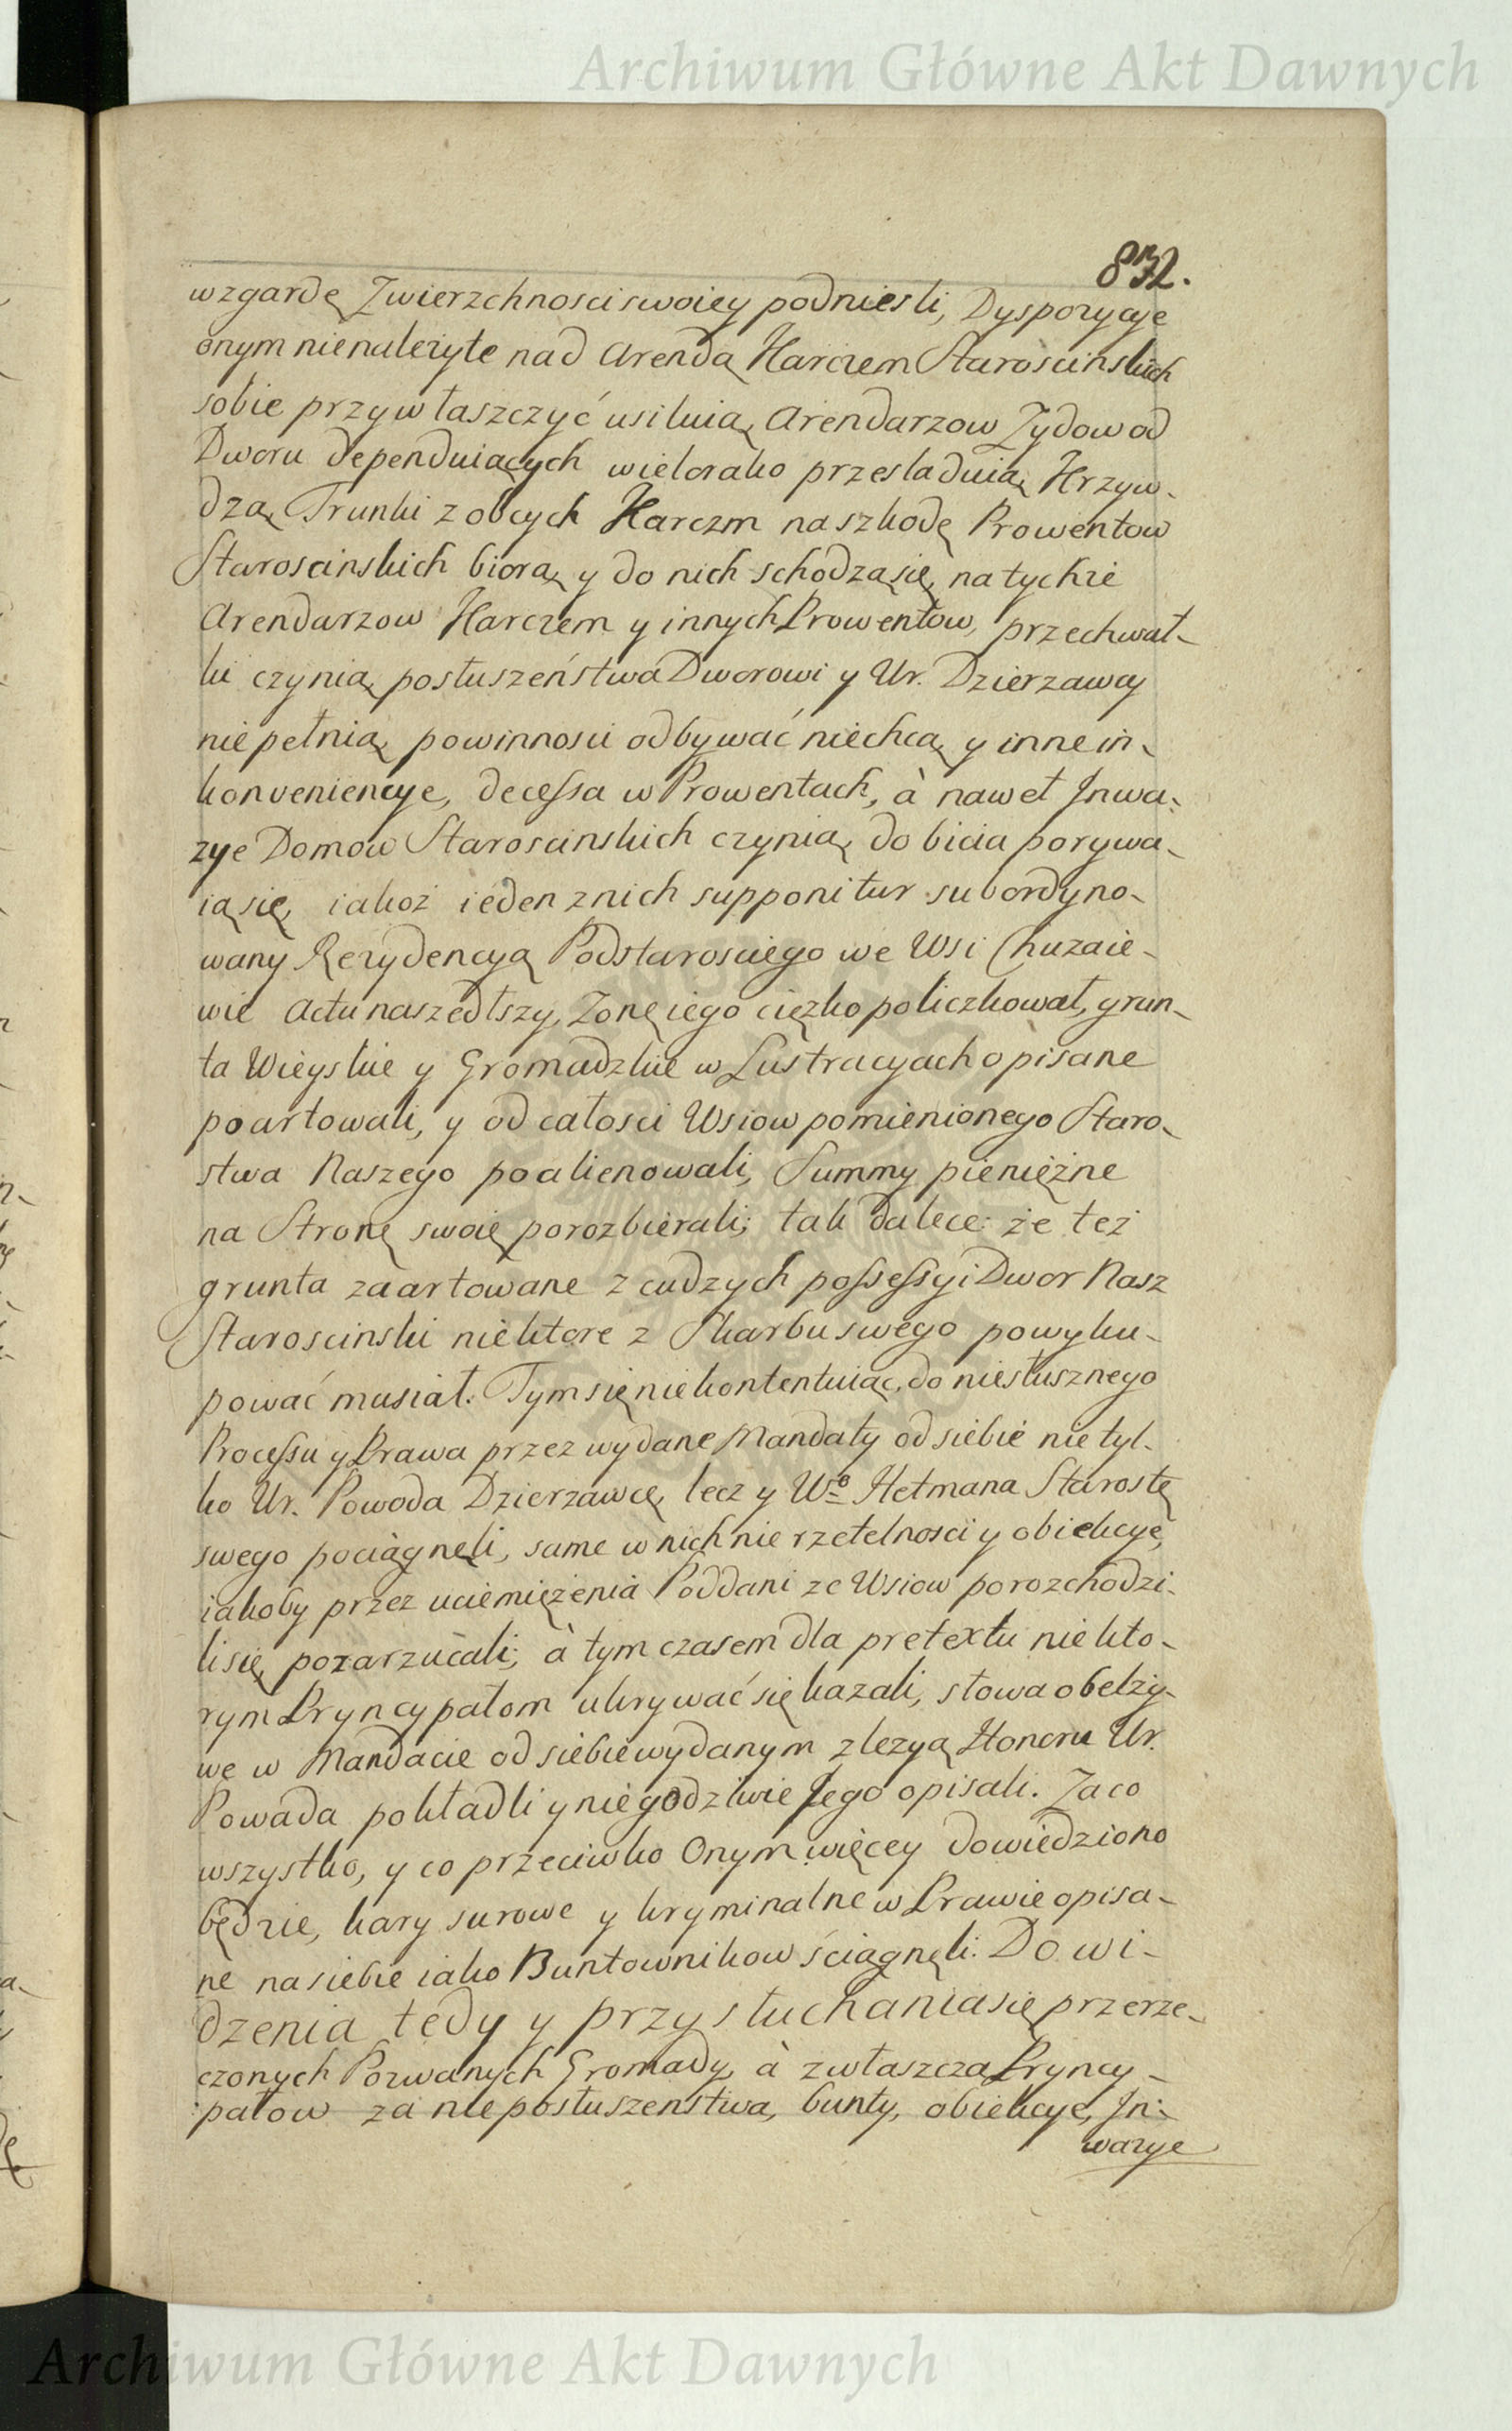 Archiwum Główne Akt Dawnych
832.
wzgardę Zwierzchnosci swoiey podniesli, Dyspozycye
onym nienależyte nad Arendą Karczem Staroscinskich
sobie przywłaszczyć usiłuią, Arendarzow Zydow od
Dworu dependuiących wielorako przesladuią, Krzyw-
dzą, Trunki z obcych Karczm na szkodę Prowentow
Staroscinskich biorą, y do nich schodzą się, na tychże
Arendarzow Karczem y innych Prowentow, przechwał-
ki czynią, posłuszeństwa Dworowi y Ur. Dzierzawcy
nie pełnią, powinnosci odbywać niechcą, y inne in-
konveniencye, decessa w Prowentach, à nawet Inwa-
zye Domow Staroscinskich czynią, do bicia porywa-
ią się, iakoż ieden z nich supponitur subordyno-
wany Rezydencyą Podstarosciego we Wsi Chuzaie-
wie Actu naszedłszy, Zonę iego cięzko policzkował, grun-
ta Wieyskie y Gromadzkie w Lustracyach opisane
poartowali, y od całosci Wsiow pomienionego Staro-
stwa Naszego poalienowali, Summy pieniężne
na Stronę swoię porozbierali; tak dalece: że też
grunta zaartowane z cudzych possessyi Dwor Nasz
Staroscinski niektore z Skarbu swego powyku-
pować musiał. Tym się niekontentuiąc, do niesłusznego
Processu y Prawa przez wydane Mandaty od siebie nietyl-
ko Ur. Powoda Dzierzawcę, lecz y Wo Hetmana Starostę
swego pociągnęli, same w nich nierzetelnosci y obiekcye,
iakoby przez uciemiężenia Poddani ze Wsiow porozchodzi-
li się, pozarzucali; à tym czasem dla pretextu niekto-
rym Pryncypałom ukrywać się kazali, słowa obelzy-
we w Mandacie od siebie wydanym z lezyą Honoru Ur.
Powada pokładli y niegodziwie Jego opisali. Za co
wszystko, y co przeciwko Onym więcey dowiedziono
będzie, kary surowe y kryminalne w Prawie opisa-
ne na siebie iako Buntownikow ściągnęli. Do wi-
dzenia tedy y przysłuchania się przerze-
czonych Pozwanych Gromady, à zwłaszcza Pryncy-
pałow za nieposłuszenstwa, bunty, obiekcye, In-
wazye
Archiwum Główne Akt Dawnych